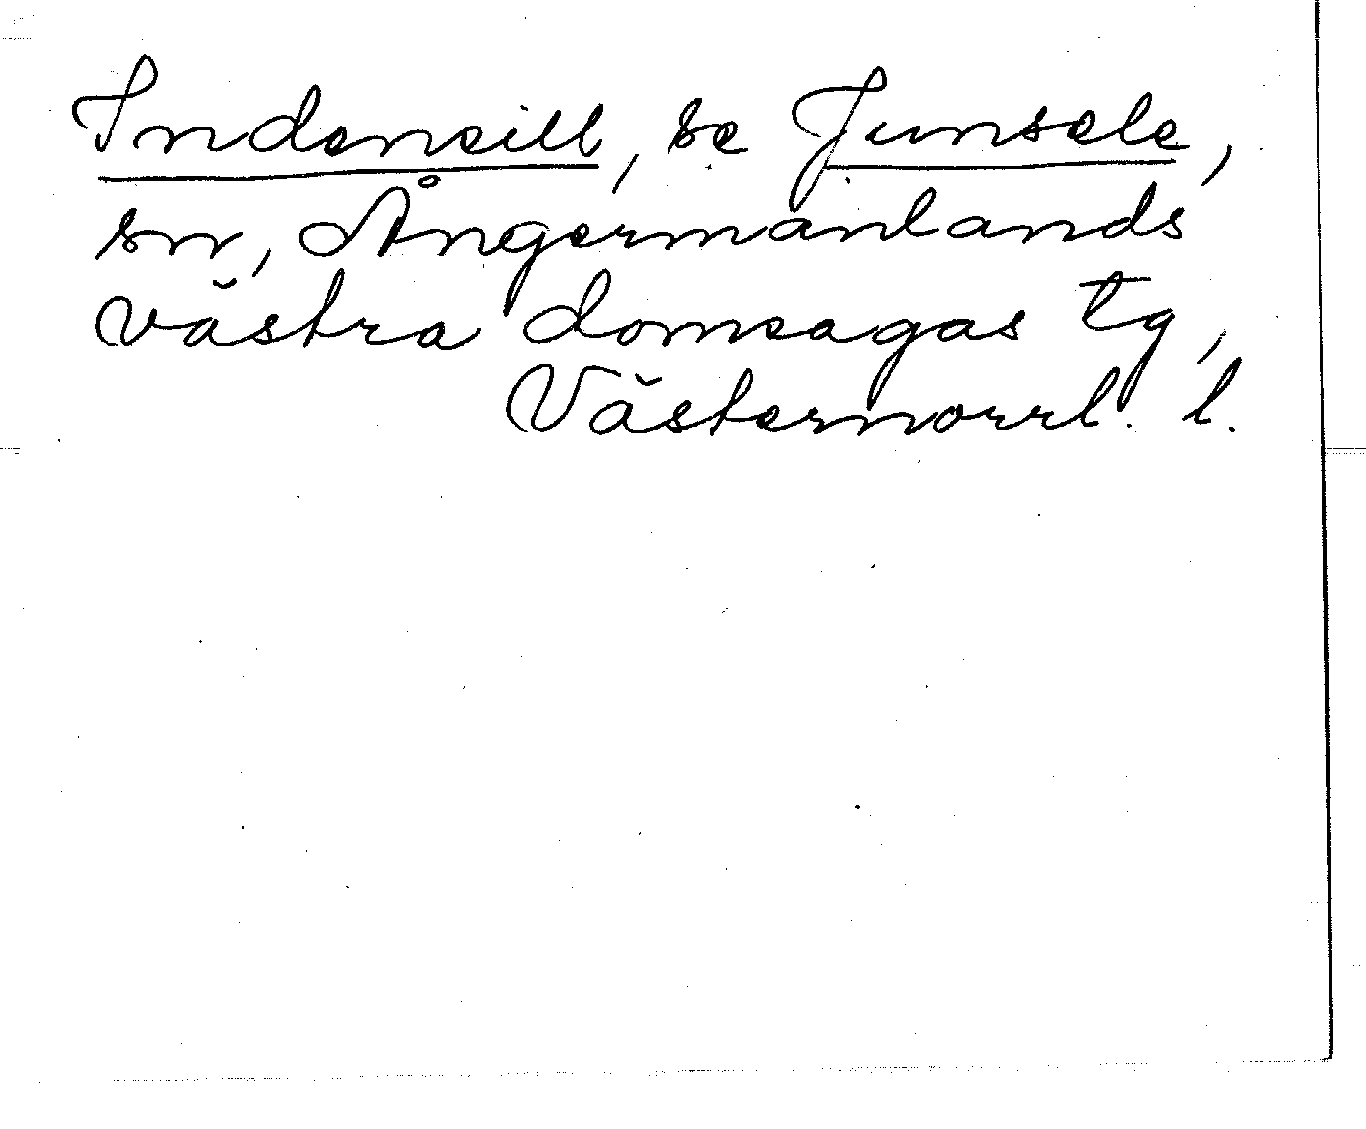 Indensill, se Junsele,
sn, Ångermanlands
västra domsagas tg,
Västernorrl. l.